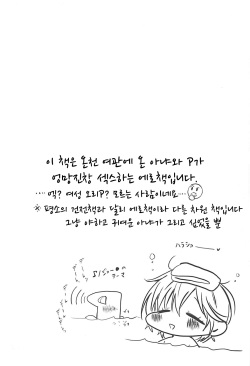 이 책은 온천 여관에 온 아냐와 P가
엉망진창 섹스하는 에로책입니다.
····엑? 여성 오리P? 모르는 사람이네요····
※ 평소의 건전책과 달리 에로책이라 다른 차원 책입니다
그냥 야하고 귀여운 아냐가 그리고 싶었을 뿐
ハラショー